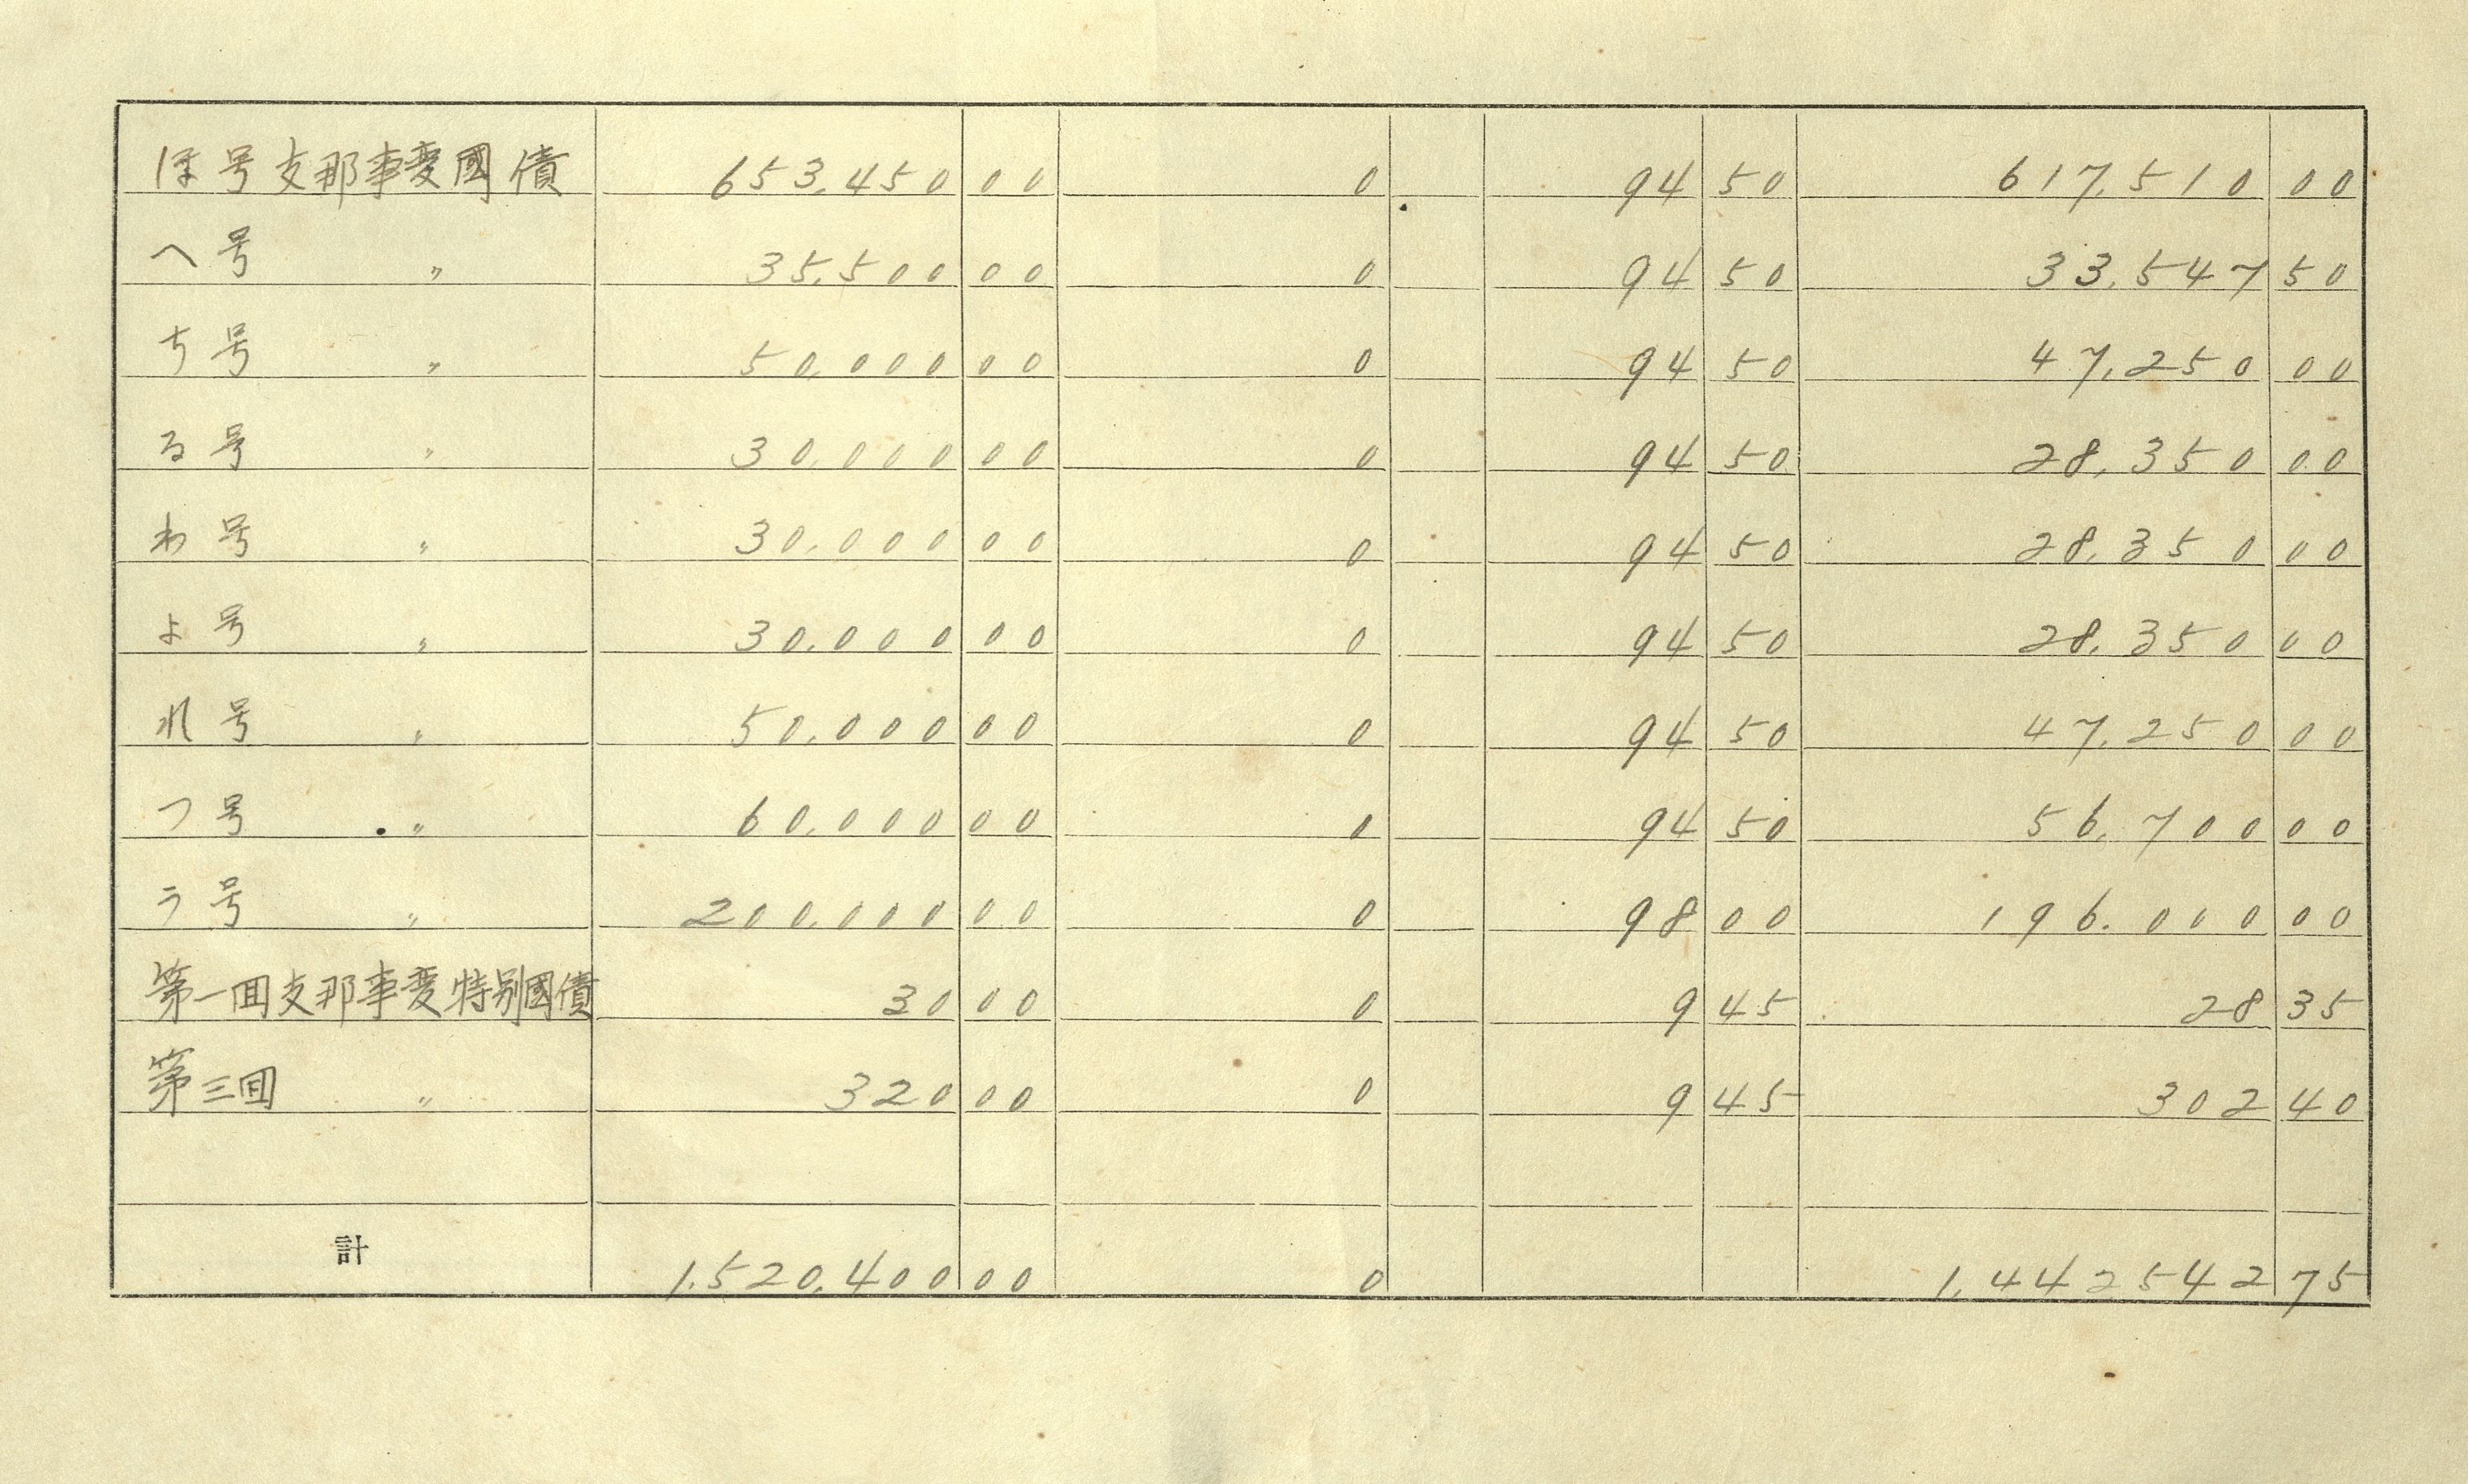 ほ号支那事変國債 653,450 00 0 94 50 617,510 00
へ号 〃 35,500 00 0 94 50 33,547 50
ち号 〃 50,000 00 0 94 50 47,250 00
る号 〃 30,000 00 0 94 50 28,350 00
わ号 〃 30,000 00 0 94 50 28,350 00
よ号 〃 30,000 00 0 94 50 28,350 00
れ号 〃 50,000 00 0 94 50 47,250 00
つ号 〃 60,000 00 0 94 50 56,700 00
ラ号 〃 200,000 00 0 98 00 196,000 00
第一回支那事変特別國債 30 00 0 9 45 28 35
第三回 〃 320 00 0 9 45 302 40
計 1,520,400 00 0 1,442542 75